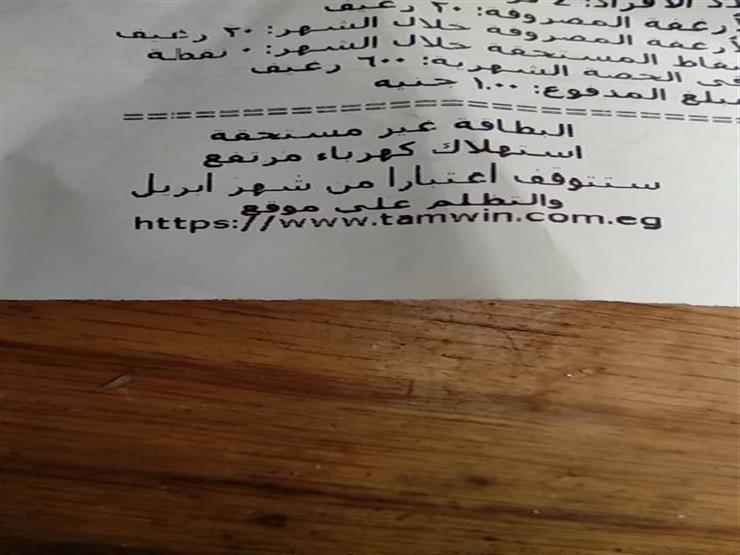 الأفراد:
الأرغفة المصروفة: ٢٠ رغيف
الأرغفة المصروفة خلال الشهر: ٢٠ رغيف
نقاط المستحقة خلال الشهر: ٠ نقطة
فى الحصة الشهرية: ٦٠٠ رغيف
مبلغ المدفوع: ١.٠٠ جنيه
البطاقة غير مستحقة
استهلاك كهرباء مرتفع
ستتوقف أعتبارا من شهر ابريل
والتظلم على موقع
https://www.tamwin.com.eg